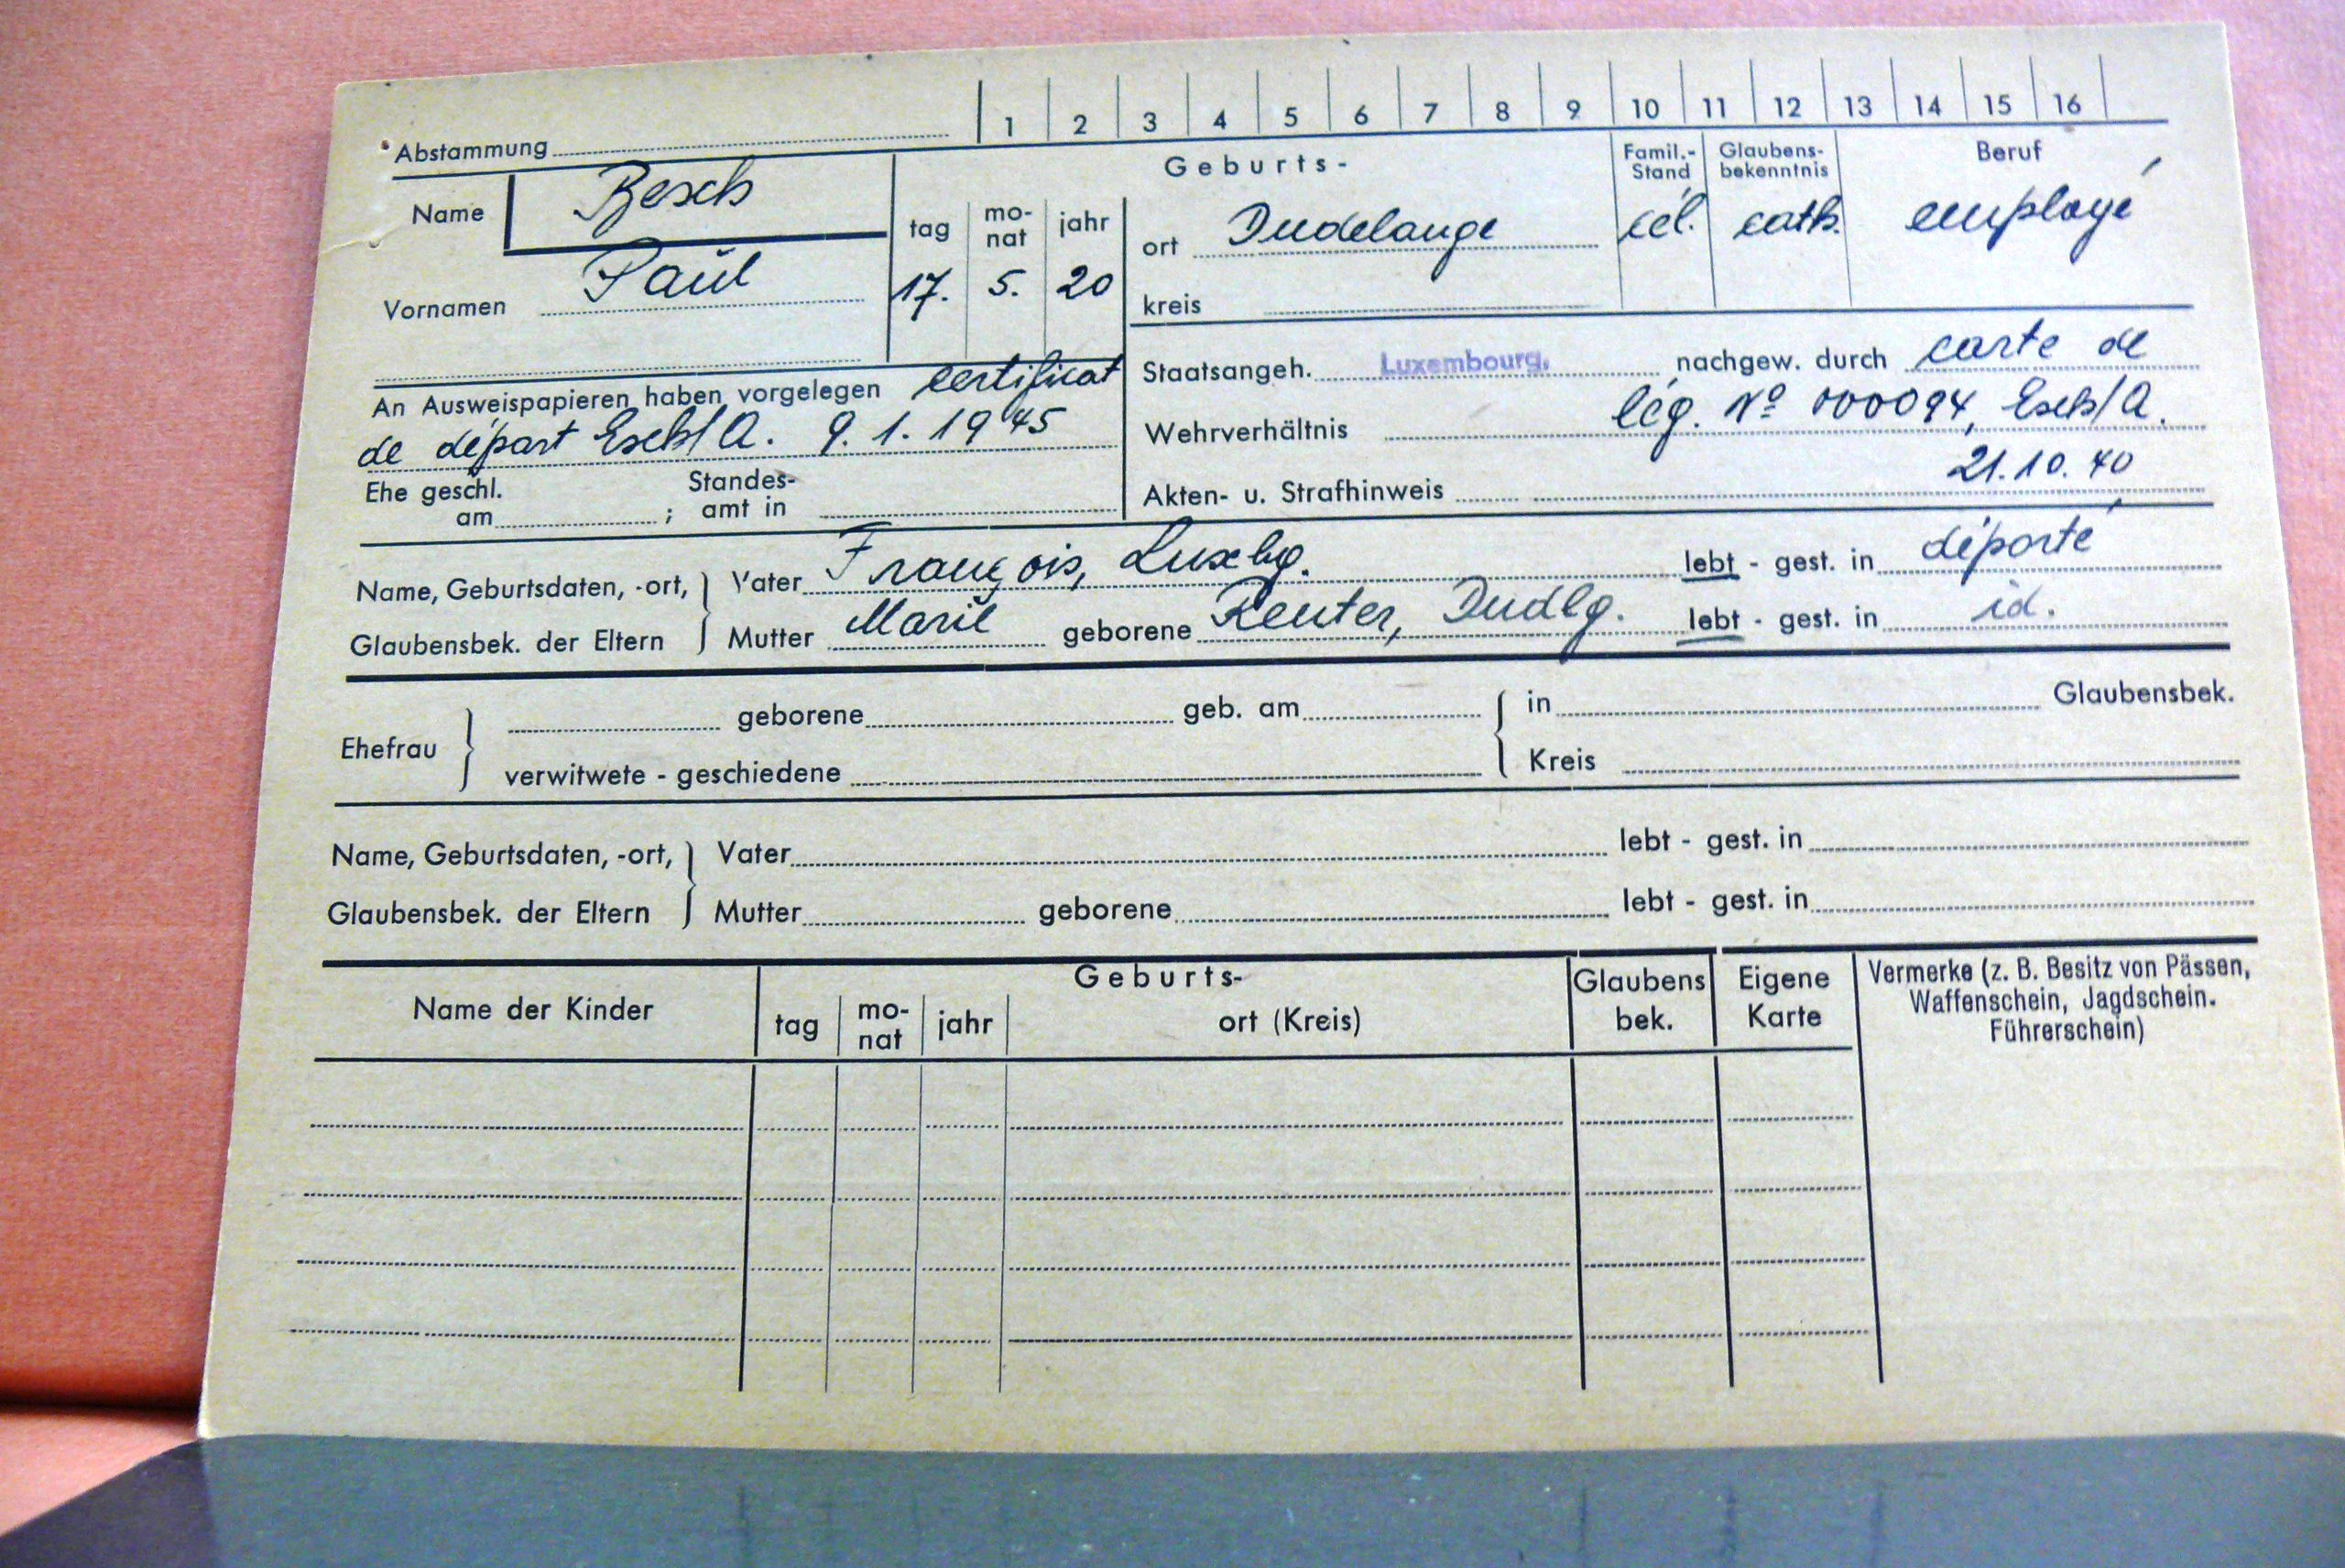 Abstammung 1 2 3 4 5 6 7 8 9 10 11 12 13 14 15 16
Name Besch
Vornamen Paul
Geburts-
tag mo-nat jahr
17. 5. 20
ort Dudelange
kreis
Famil.-Stand
cél.
Glaubens-bekenntnis
cath.
Beruf
employé
An Ausweispapieren haben vorgelegen certificat
de départ Esch/A. 9.1.1945
Ehe geschl. am ; Standes-amt in
Staatsangeh. Luxembourg. nachgew. durch carte de
Wehrverhältnis lég. Nº 000094, Esch/A.
Akten- u. Strafhinweis 21.10.40
Name, Geburtsdaten, -ort, Vater François, Luxbg. lebt - gest. in déporté
Glaubensbek. der Eltern Mutter Marie geborene Reuter, Dudlg. lebt - gest. in id.
Ehefrau
geborene geb. am in Glaubensbek.
verwitwete - geschiedene Kreis
Name, Geburtsdaten, -ort, Vater lebt - gest. in
Glaubensbek. der Eltern Mutter geborene lebt - gest. in
Name der Kinder
Geburts-
tag mo-nat jahr ort (Kreis)
Glaubens bek.
Eigene Karte
Vermerke (z. B. Besitz von Pässen,
Waffenschein, Jagdschein.
Führerschein)